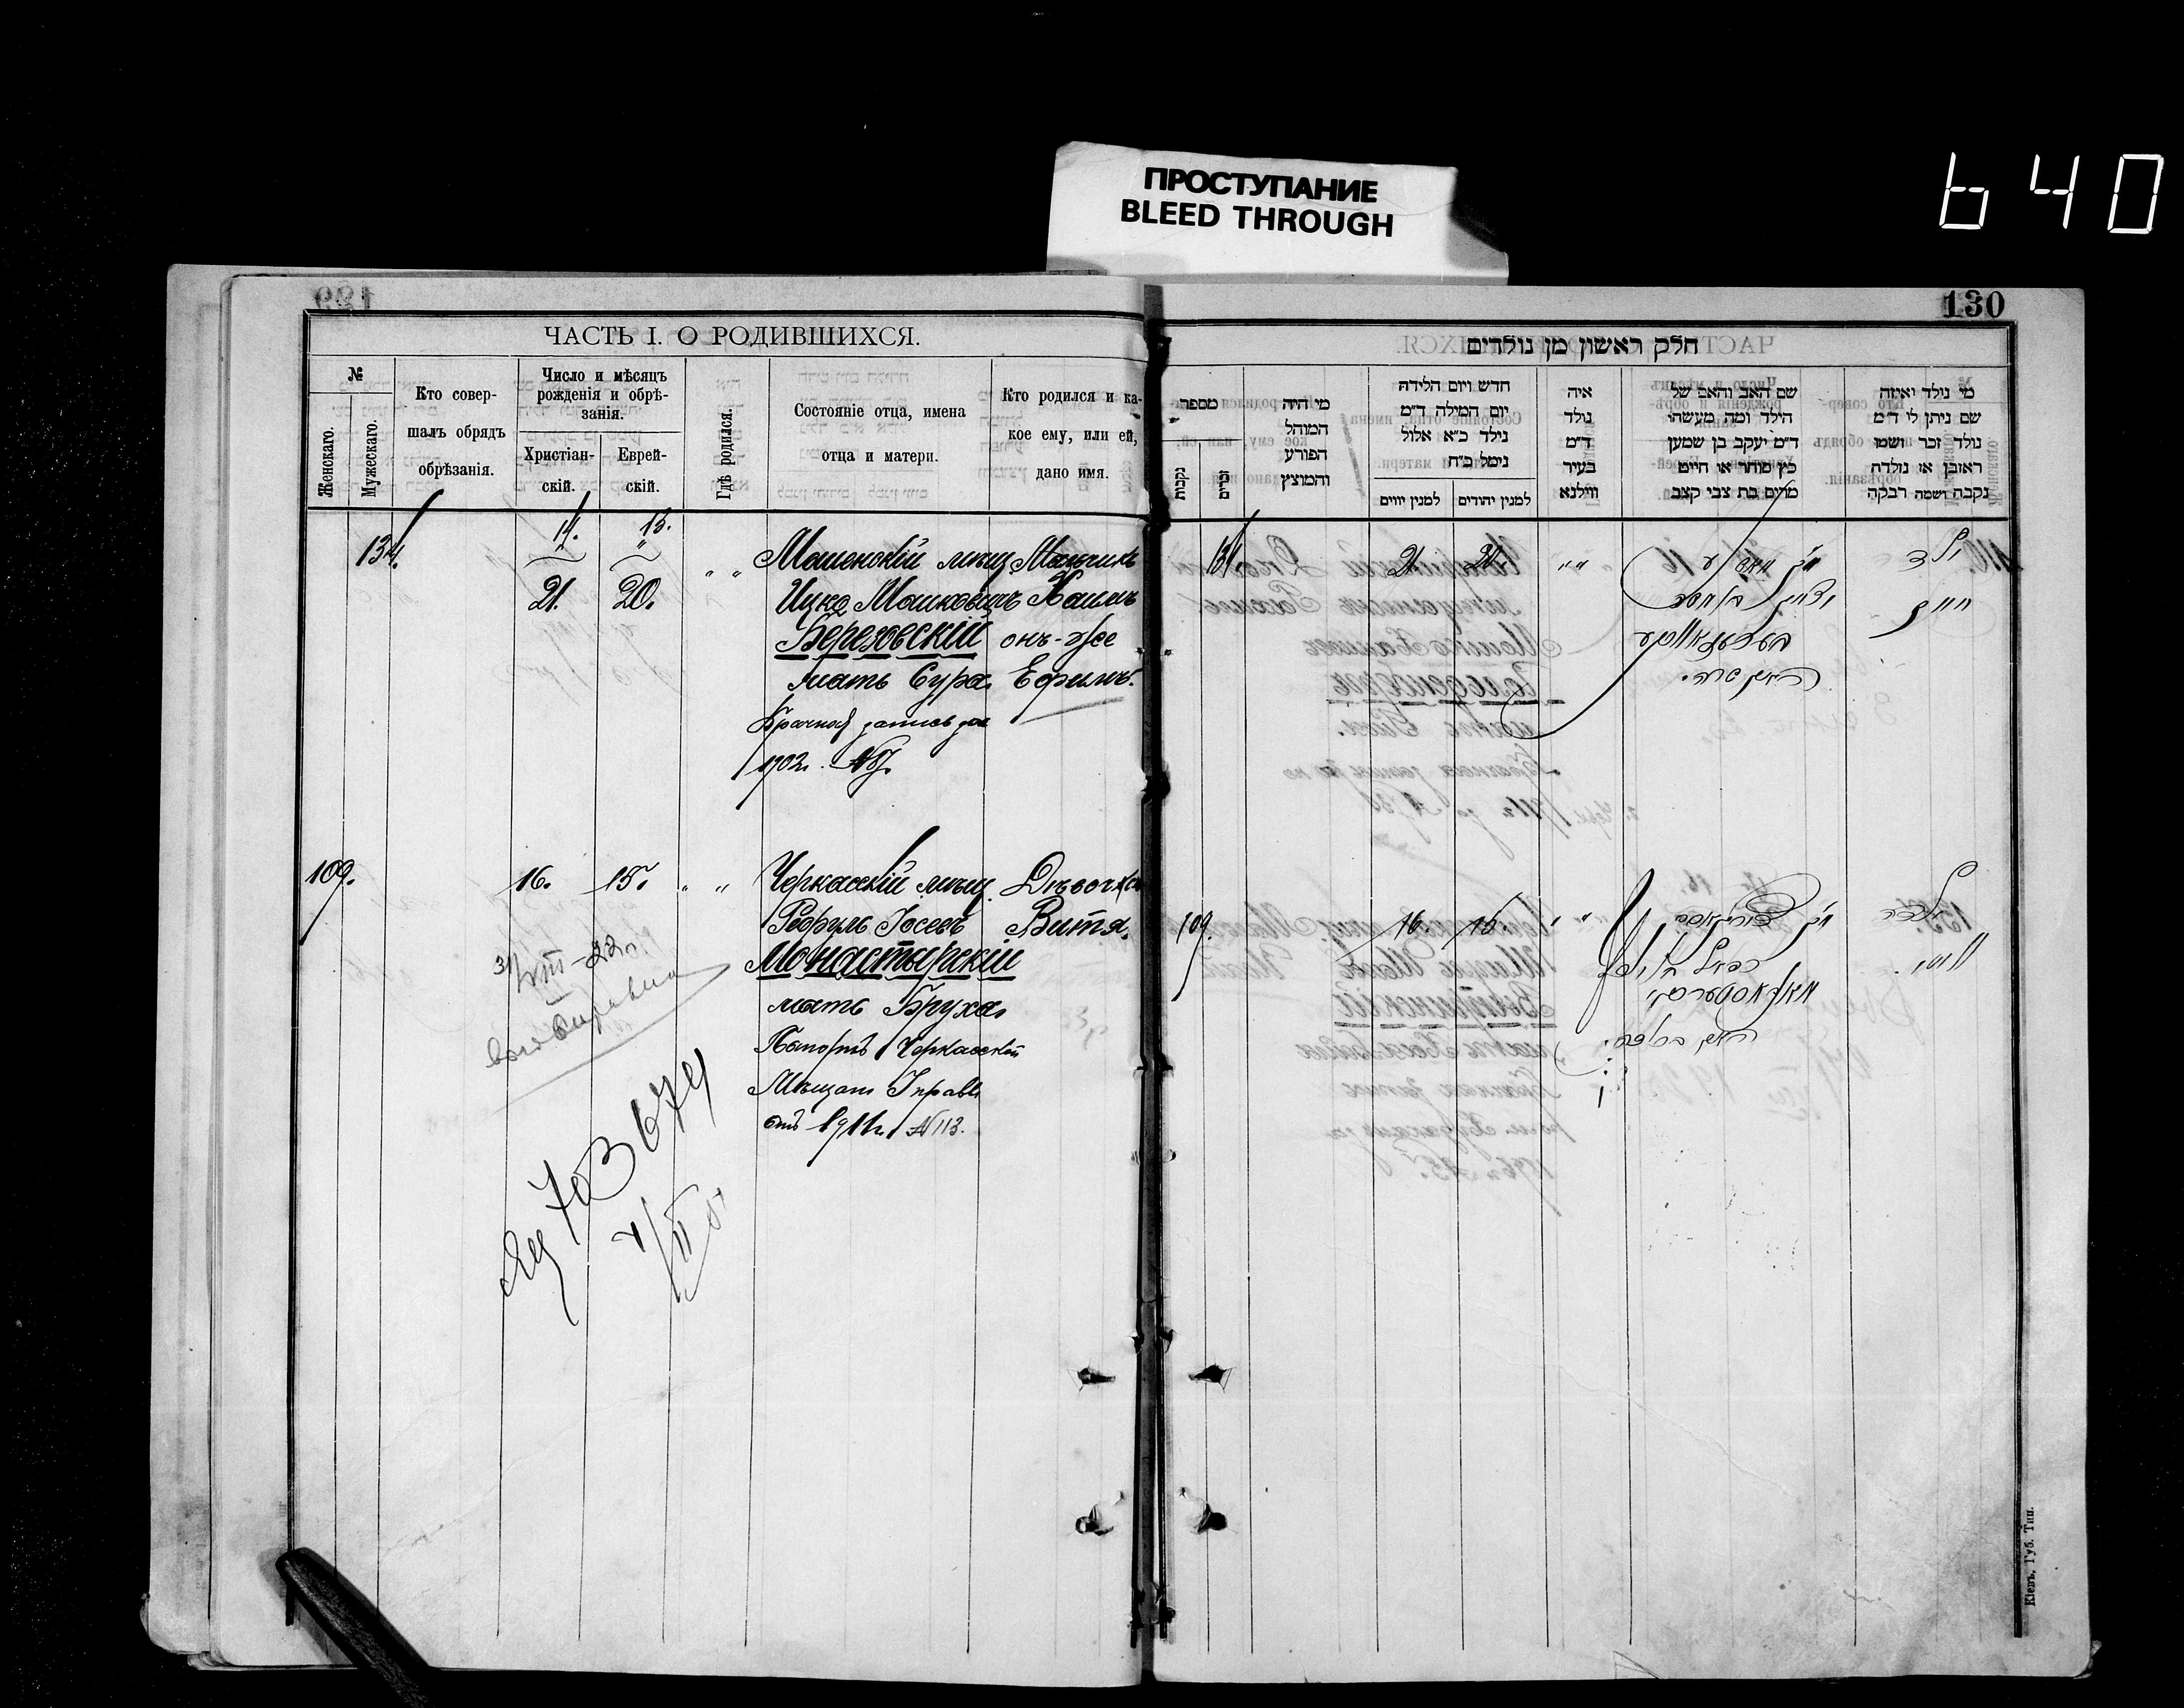 ПРОСТУПАНИЕ
BLEED THROUGH
640
129
130
ЧАСТЬ I. О РОДИВШИХСЯ.
№
Женскаго.
Мужескаго.
Кто совер-
шалъ обрядъ
обрѣзанія.
Число и мѣсяцъ
рожденія и обрѣ-
занія.
Христіан-
скій.
Еврей-
скій.
Гдѣ родился.
Состояніе отца, имена
отца и матери.
Кто родился и ка-
кое ему, или ей,
дано имя.
134.
14.
13.
21.
20.
" "
Мошенскій мѣщ.
Ицко Мошковичъ
Березовскій
мать Сура
Брачная запись за
1902г. №7.
Мальчикъ
Хаимъ
онъ-же
Ефимъ.
109.
16.
15.
" "
Черкасскій мѣщ.
Рефуль Іосевъ
Монастырскій
мать Бруха
Черкасской
Мѣщан Управы
отъ 1911г. №113.
Дѣвочка
Витя.
31/VIII-22г.
חלק ראשון מן נולדים
מספר
נקבות
זכרים
מי היה
המוהל
הפורע
והמוצץ
חדש ויום הלידה
יום המילה ד"מ
נילד כ"א אלול
נימל כ"ח
למנין יווים
למנין יהודים
איה
נולד
ד"מ
בעיר
ווילנא
שם האב והאם של
הילד ומה מעשהו
ד"מ יעקב בן שמען
כץ סוחר או חייט
מרים בת צבי קצב
מי נולד ואיזה
שם ניתן לו ד"מ
נולד זכר ושמו
ראובן או נולדה
נקבה ושמה רבקה
134.
21.
20.
" "
ילד
חיים
109.
16.
15.
" "
ילדה
Кіевъ, Губ. Тип.